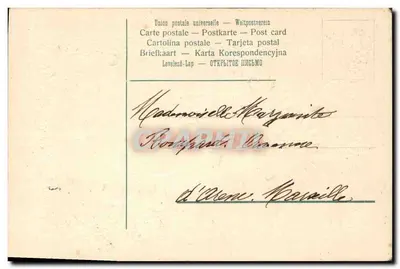 Union postale universelle – Weltpostverein
Carte postale – Postkarte – Post card
Cartolina postale – Tarjeta postal
Briefkaart – Karta Korespondencyjna
Levelező-Lap – ОТКРЫТОЕ ПИСЬМО
Mademoiselle Marguerite
d'Arenc. Marseille